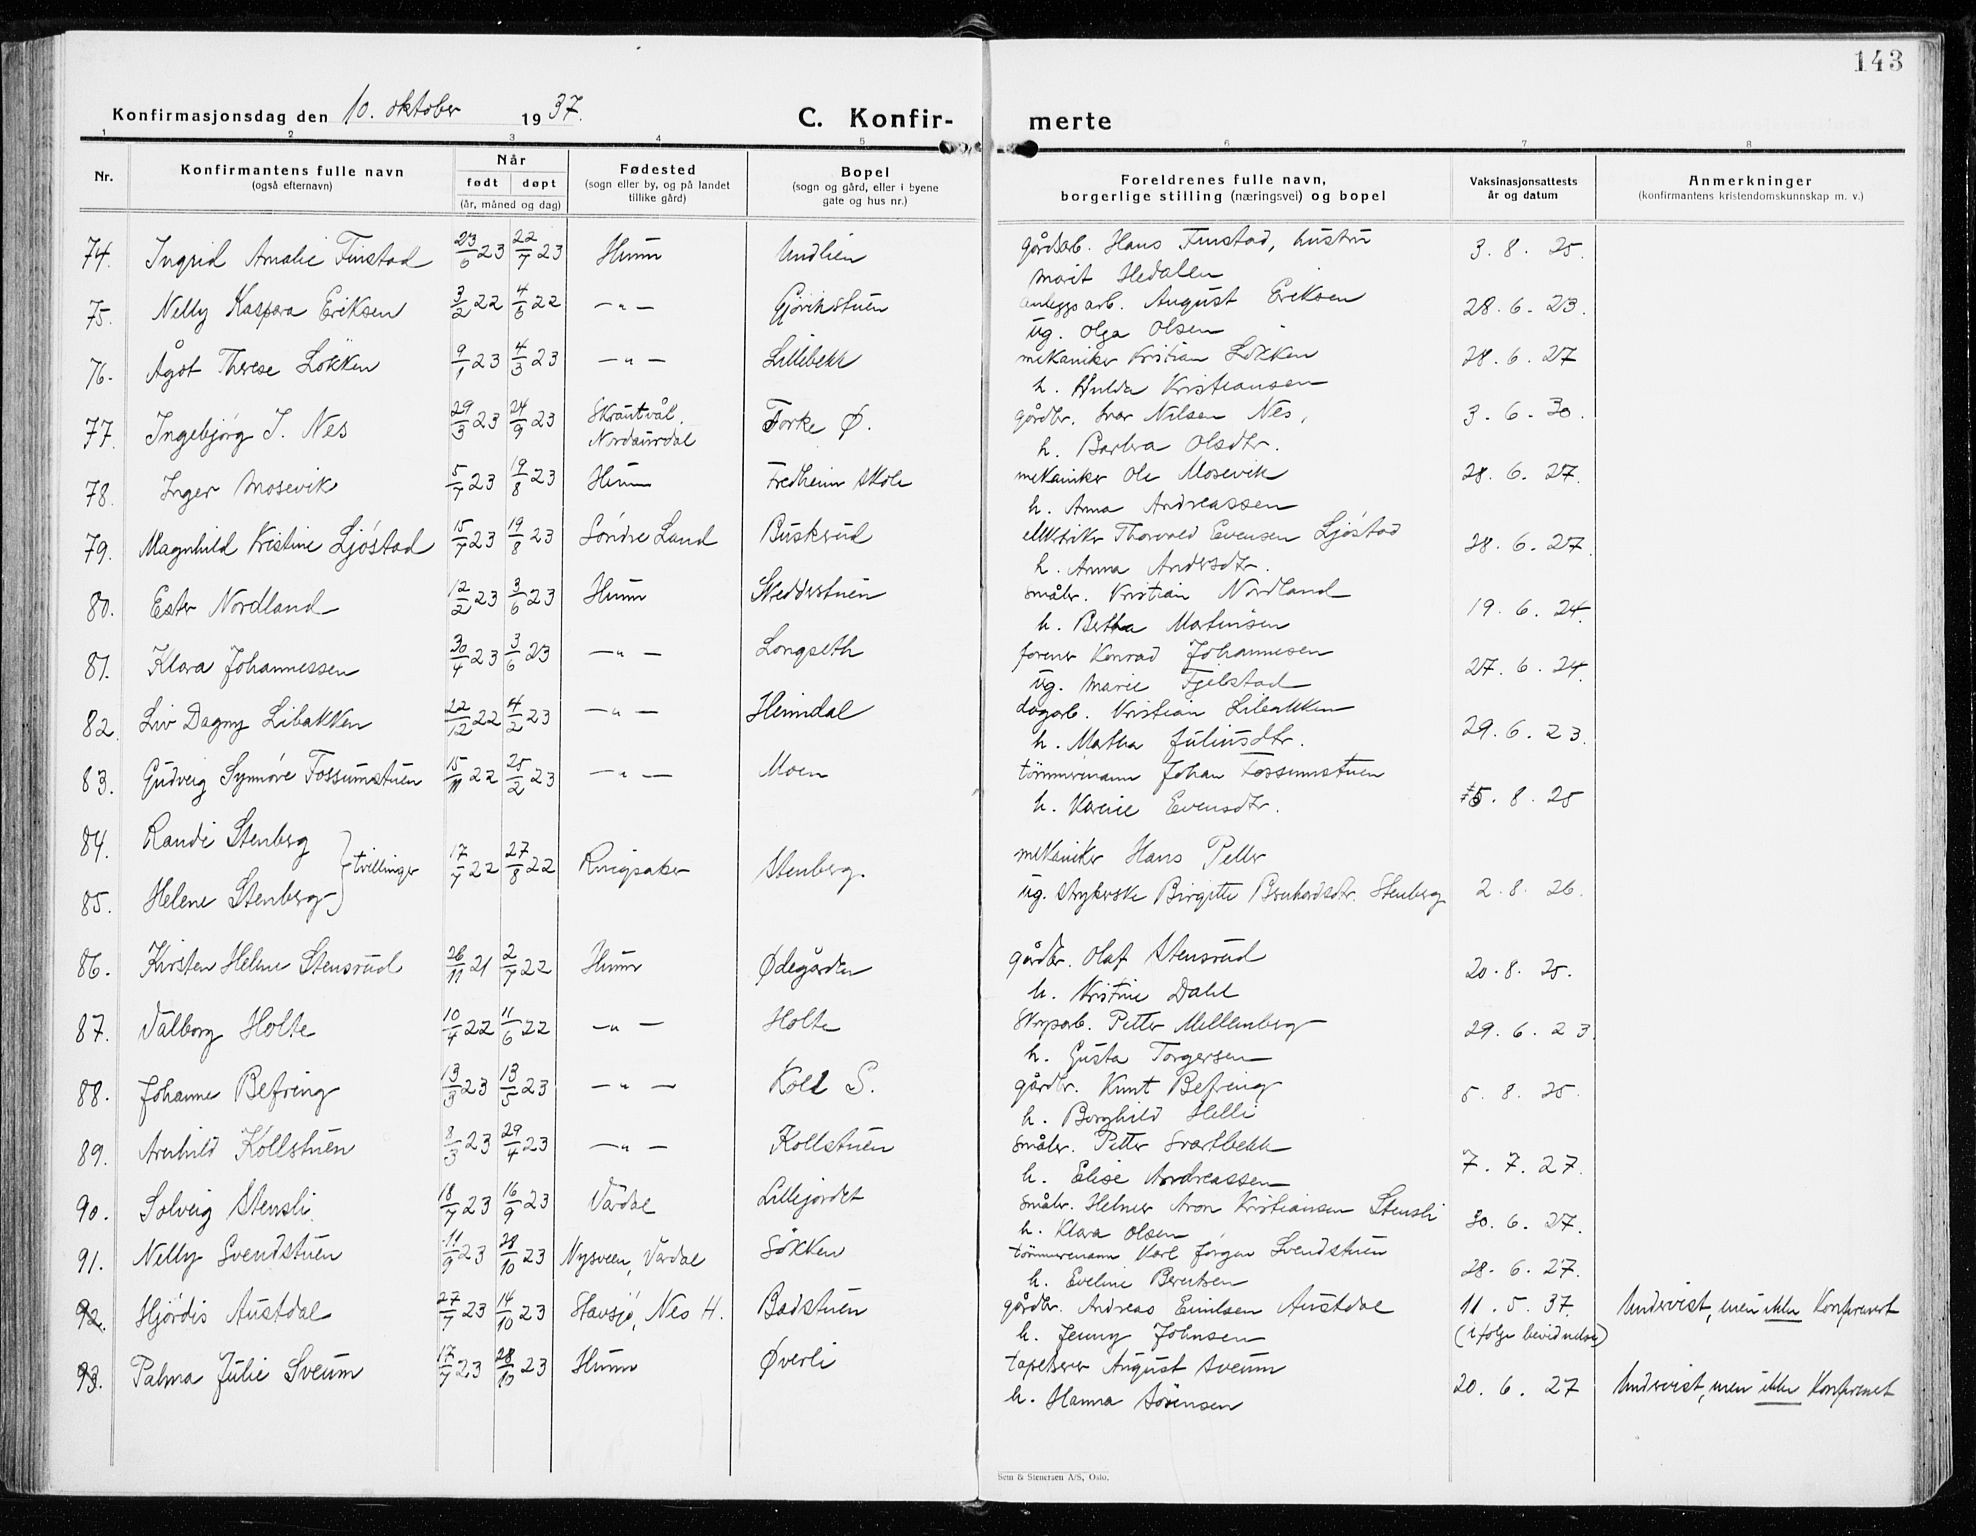 143
Konfirmasjonsdag den 10. oktober 1937.
C. Konfir- merte
1 2 3 4 5 6 7 8
Nr.
Konfirmantens fulle navn
(også efternavn)
Når
født døpt
(år, måned og dag)
Fødested
(sogn eller by, og på landet
tillike gård)
Bopel
(sogn og gård, eller i byene
gate og hus nr.)
Foreldrenes fulle navn,
borgerlige stilling (næringsvei) og bopel
Vaksinasjonsattests
år og datum
Anmerkninger
(konfirmantens kristendomskunnskap m. v.)
74. Ingrid Amalie Finstad 23/6 23 22/7 23 Hunn Undlien gårdarb. Hans Finstad, hustru 3. 8. 25.
Marit Hedalen
75. Nelly Kaspara Eriksen 3/2 22 4/6 22 — " — Gjövikstuen anleggsarb. August Eriksen 28. 6. 23.
ug. Olga Olsen
76. Ågot Therese Lökken 9/1 23 4/3 23 — " — Lillebekk mekaniker Kristian Lökken 28. 6. 27
h. Hulda Kristiansen
77. Ingebjörg I. Nes 29/3 23 24/9 23 Skrautvål, Nordaurdal Forke Ø. gårdbr. Ivar Nilsen Nes, 3. 6. 30.
h. Barbra Olsdtr.
78. Inger Mosevik 5/7 23 19/8 23 Hunn Fredheim skole mekaniker Ole Mosevik 28. 6. 27.
h. Anna Andreassen
79. Magnhild Kristine Ljöstad 15/7 23 19/8 23 Söndre Land Buskerud Thorvald Evensen Ljöstad 28. 6. 27.
h. Anna Andersdtr.
80. Ester Nordland 12/2 23 3/6 23 Hunn Skedderstuen småbr. Kristian Nordland 19. 6. 24.
h. Bertha Martinsen
81. Klara Johannessen 30/4 23 3/6 23 — " — Longseth former Konrad Johannesen 27. 6. 24.
ug. Marie Fjelstad
82. Liv Dagny Libakken 22/12 22 4/2 23 — " — Heimdal dagarb. Kristian Libakken 29. 6. 23.
h. Mathea Juliusdtr.
83. Gudveig Synnöve Fossumstuen 15/11 22 25/2 23 — " — Moen tömmermann Johan Fossumstuen 5. 8. 25
h. Karine Evensdtr.
84. Randi Stenberg
} tvillinger 17/7 22 27/8 22 Ringsaker Stenberg. mekaniker Hans Peller
85. Helene Stenberg ug. strykerske Birgitte Bernhardsdtr. Stenberg 2. 8. 26.
86. Kirsten Helene Stensrud 26/11 21 2/7 22 Hunn Ødegården gårdbr. Olaf Stensrud 20. 8. 25.
h. Kristine Dahl
87. Valborg Holte 10/4 22 11/6 22 — " — Holte Petter Mellenberg 29. 6. 23.
h. Gusta Torgersen
88. Johanne Befring 13/3 23 13/5 23 — " — Koll S. gårdbr. Knut Befring 5. 8. 25.
h. Borghild Helli
89. Arnhild Kollstuen 8/3 23 29/4 23 — " — Kollstuen småbr. Petter Svartbekk 7. 7. 27.
h. Elise Andreassen
90. Solveig Stensli 18/7 23 16/9 23 Vardal Lillejordet småbr. Helmer Aron Kristiansen Stensli 30. 6. 27.
h. Klara Olsen
91. Nelly Svendstuen 11/9 23 28/10 23 Nysveen, Vardal Sökken tömmermann Karl Jörgen Svendstuen 28. 6. 27.
h. Eveline Berntsen
92. Hjördis Austdal 27/7 23 14/10 23 Stavsjö, Nes H. Badstuen gårdbr. Andreas Emilsen Austdal 11. 5. 37. Undervist, men ikke konfirmert
h. Jenny Johnsen (ifölge bevidnelse)
93. Palma Julie Sveum 17/7 23 28/10 23 Hunn Øverli tapetserer August Sveum 20. 6. 27 Undervist, men ikke konfirmert
h. Hanna Sörensen
Sem & Stenersen A/S, Oslo.